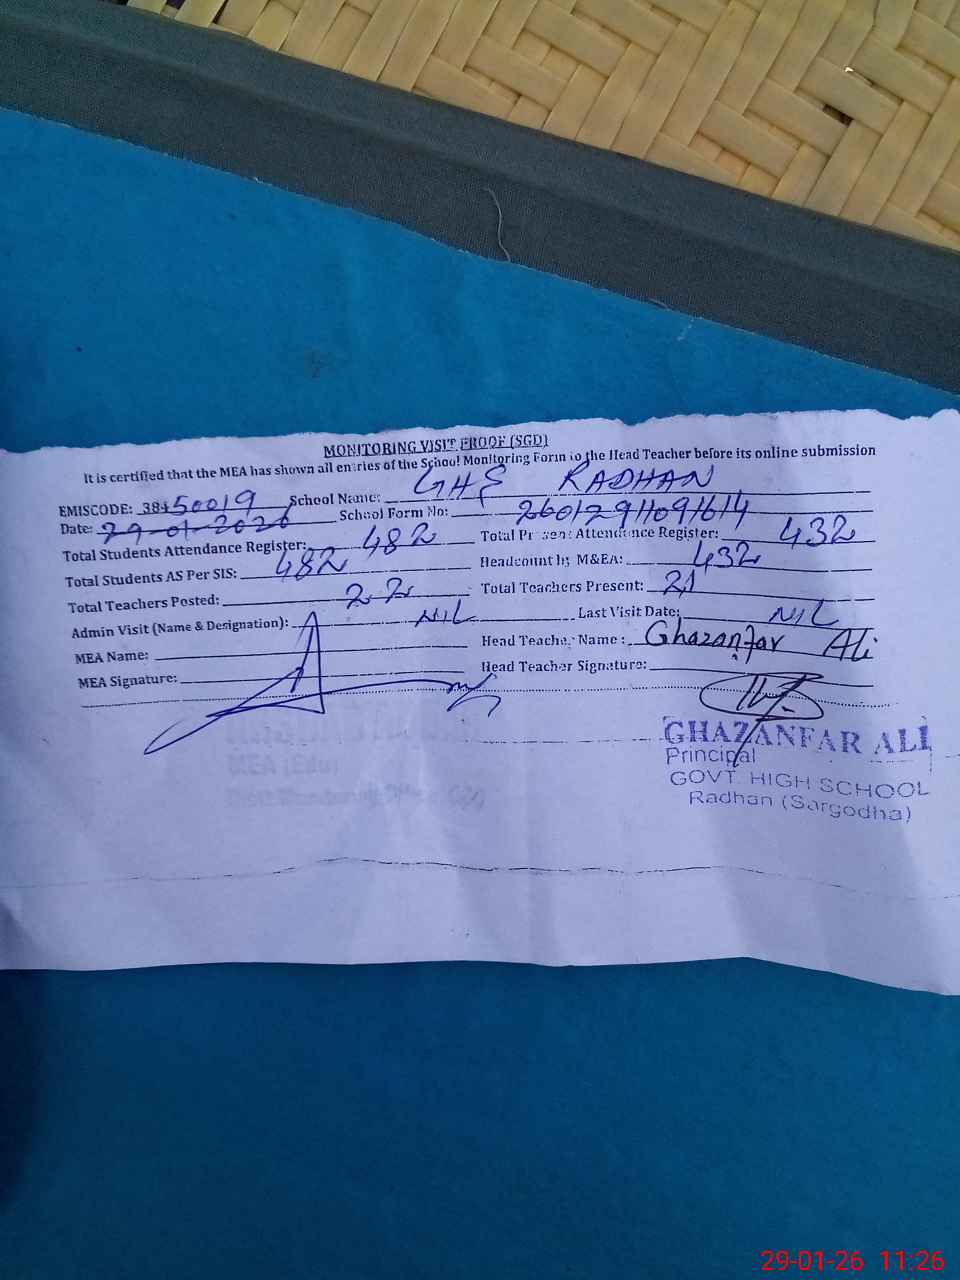 MONITORING VISIT PROOF (SGD)
It is certified that the MEA has shown all entries of the School Monitoring Form to the Head Teacher before its online submission
EMISCODE: 38450019 School Name: GHS RADHAN
Date: 29-01-2026 School Form No: 26012911091614
Total Students Attendance Register: 482 Total Present Attendance Register: 432
Total Students AS Per SIS: 482 Headcount by M&EA: 432
Total Teachers Posted: 22 Total Teachers Present: 21
Admin Visit (Name & Designation): NIL Last Visit Date: NIL
MEA Name: Head Teacher Name: Ghazanfar Ali
MEA Signature: Head Teacher Signature:
GHAZANFAR ALI
Principal
GOVT. HIGH SCHOOL
Radhan (Sargodha)
MEA (Edu)
29-01-26 11:26